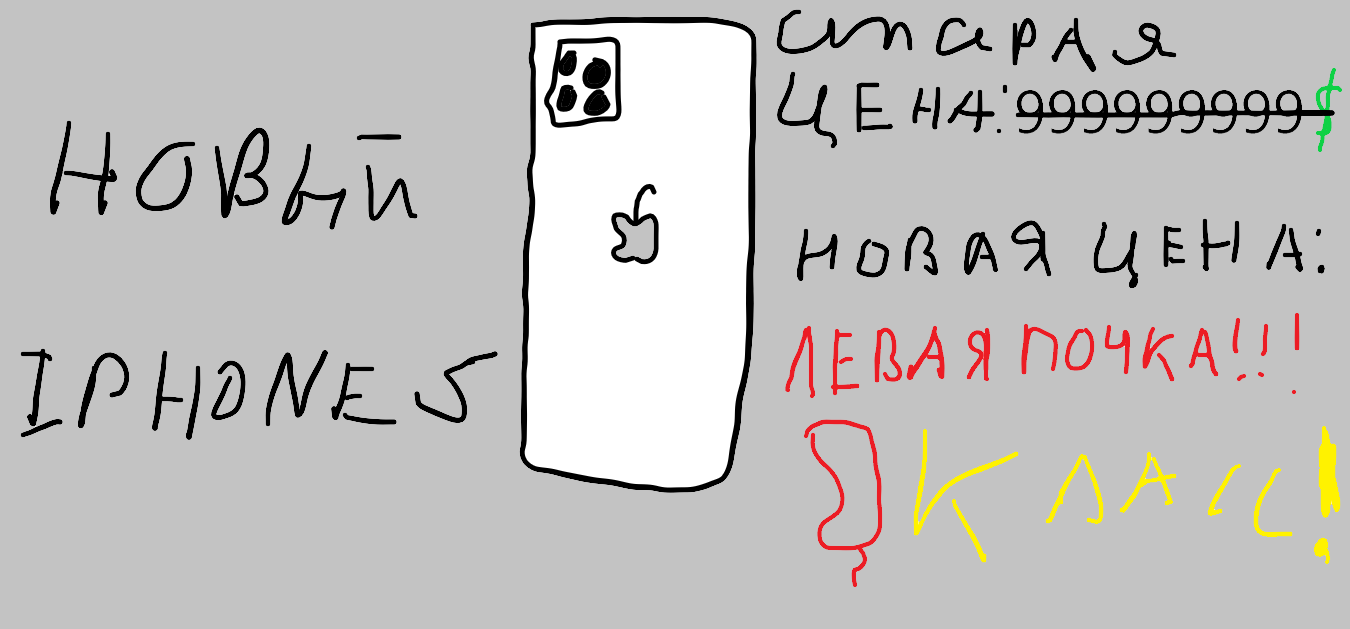 НОВЫЙ
IPHONE 5
СТАРАЯ
ЦЕНА: 999999999$
НОВАЯ ЦЕНА:
ЛЕВАЯ ПОЧКА!!!
КЛАСС!